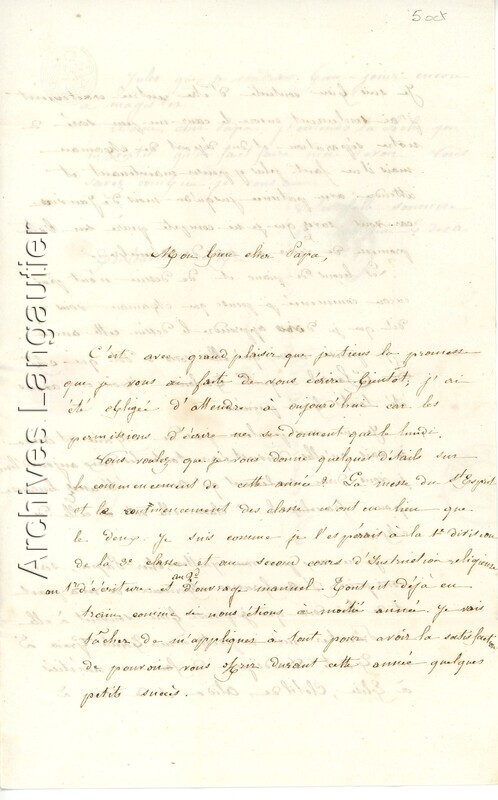 5 oct
Mon bien cher Papa,
C'est avec grand plaisir que je tiens la promesse
que je vous ai faite de vous écrire bientôt; j'ai
été obligée d'attendre à aujourd'hui car les
permissions d'écrire ne se donnent que le lundi.
Vous voulez que je vous donne quelques détails sur
le commencement de cette année? La messe du St Esprit
et le commencement des classe n'ont eu lieu que
le deux. Je suis comme je l'espérais à la 1e division
de la 3e classe et au second cours d'Instruction religieuse
au 1er d'écriture et au 2d d'ouvrage manuel. Tout est déjà en
train comme si nous étions à moitié année. Je vais
tâcher de m'appliquer à tout pour avoir la satisfaction
de pouvoir vous offrir durant cette année quelques
petits succès.
Archives Langautier